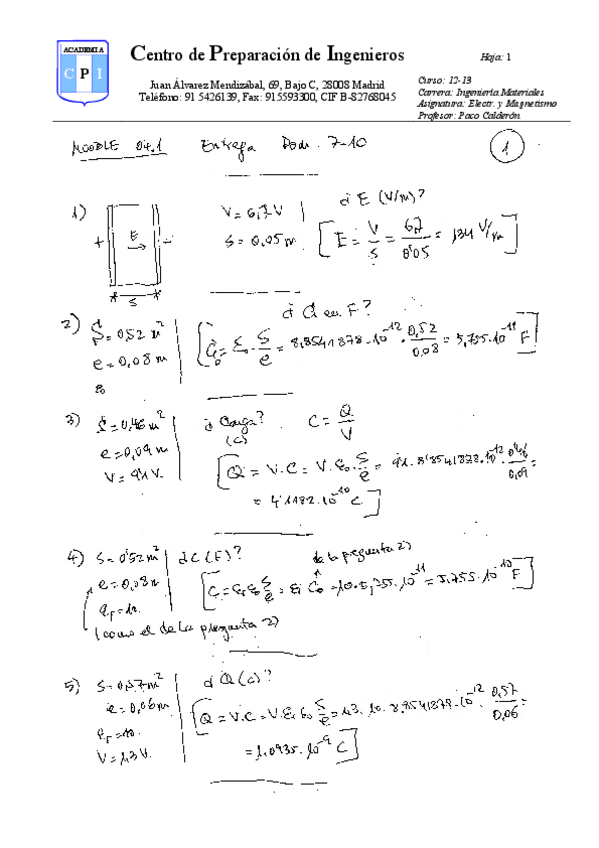 ACADEMIA
CPI
Centro de Preparación de Ingenieros
Hoja: 1
Juan Álvarez Mendizábal, 69, Bajo C, 28008 Madrid
Teléfono: 91 5426139, Fax: 915593300, CIF B-82768045
Curso: 12-13
Carrera: Ingeniería Materiales
Asignatura: Electr. y Magnetismo
Profesor: Paco Calderón
MOODLE 04.1 Entrega Dom. 7-10 1
1) + E - s
V = 6,7 V
s = 0,05 m
¿ E (V/m)?
[E = V/s = 6,7/0'05 = 134 V/m]
2) S = 0,52 m²
e = 0,08 m
ε₀
¿ C en F?
[C₀ = ε₀ · S/e = 8,8541878·10⁻¹² · 0,52/0,08 = 5,755·10⁻¹¹ F]
3) S = 0,46 m²
e = 0,09 m
V = 9'1 V.
¿ Carga? (C)
C = Q/V
[Q = V·C = V·ε₀·S/e = 9'1·8'8541878·10⁻¹² · 0,46/0,09 =
= 4'1182·10⁻¹⁰ C]
4) S = 0'52 m²
e = 0,08 m
εr = 10.
(como el de la pregunta 2)
¿ C (F)?
de la pregunta 2)
[C = εr ε₀ S/e = εr C₀ = 10·5,755·10⁻¹¹ = 5.755·10⁻¹⁰ F]
5) S = 0,57 m²
e = 0,06 m
εr = 10.
V = 1,3 V.
¿ Q (C)?
[Q = V·C = V·εr ε₀ S/e = 1,3·10·8,8541878·10⁻¹² · 0,57/0,06 =
= 1,0935·10⁻⁹ C]